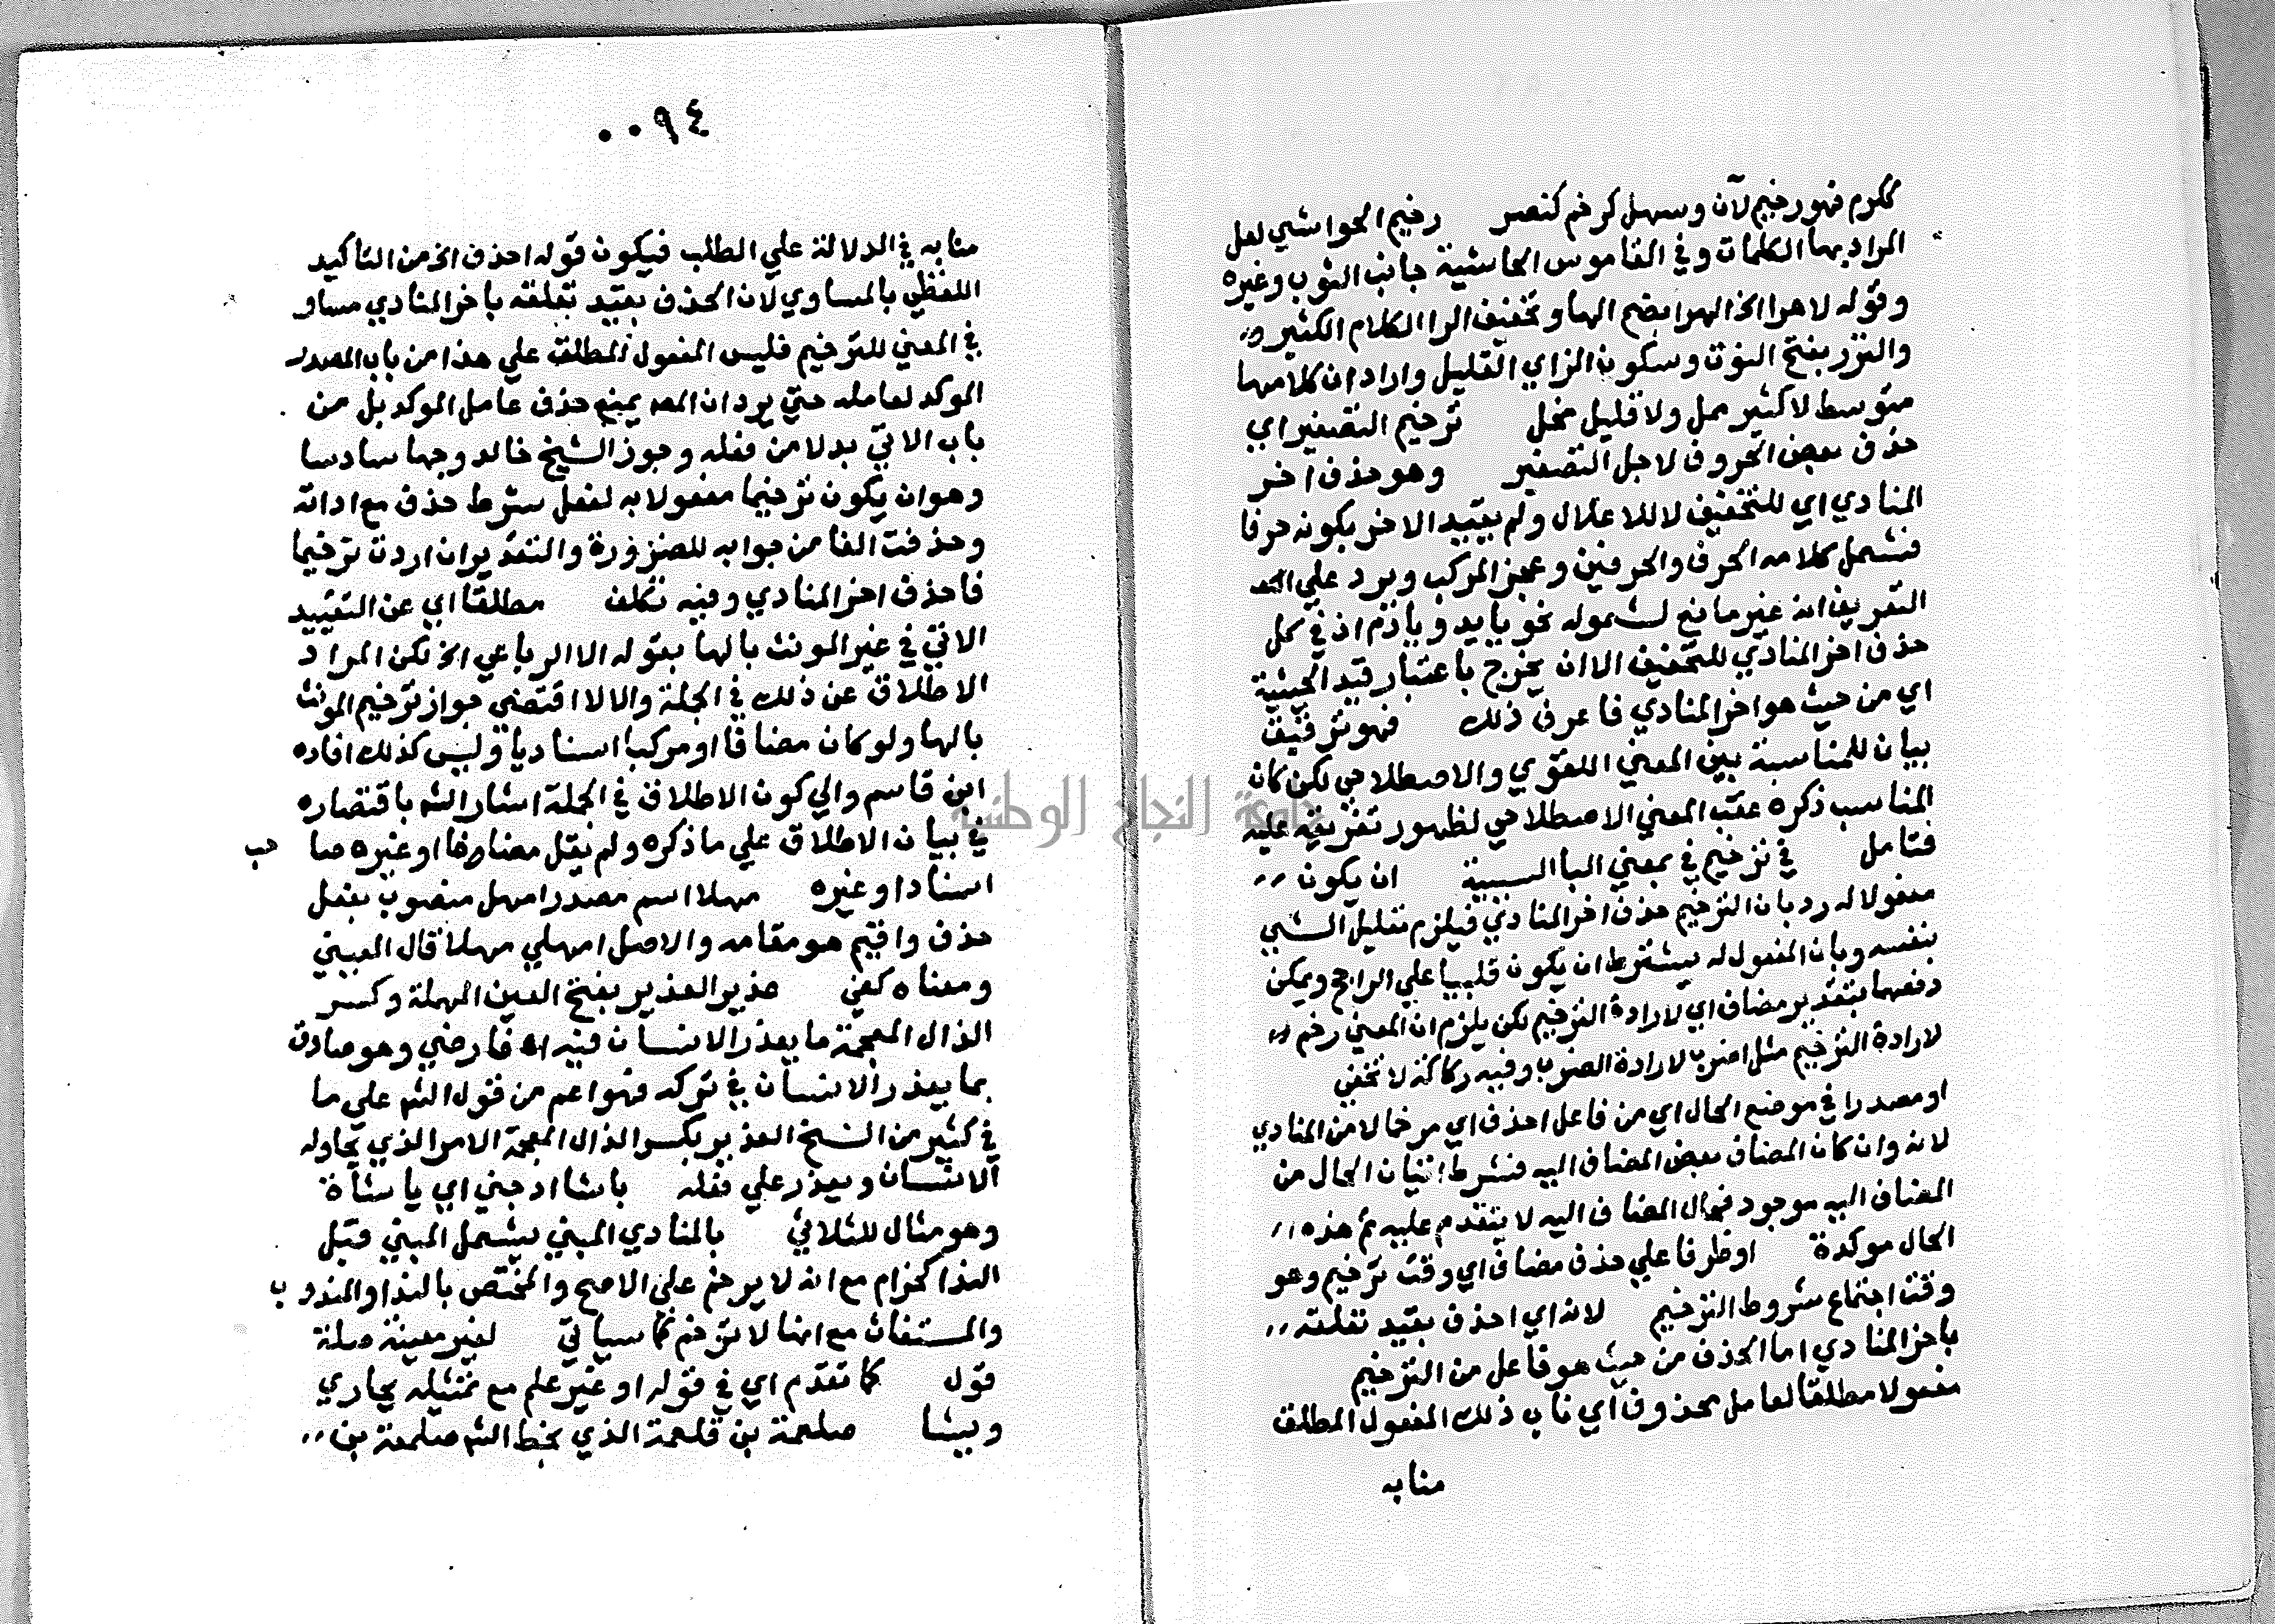 ككرم فهو رخيم لان وسهل كرخم كنصر رخيم الحواشي لعل
المراد بها الكلمات وفي القاموس الحاشية جانب الثوب وغيره
وقوله لا هرا الخ الهرا بضم الها وتخفيف الرا الكلام الكثير
والنزر بفتح النون وسكون الزاي القليل واراد ان كلامها
متوسط لا كثير ممل ولا قليل مخل ترخيم التصغير اي
حذف بعض الحروف لاجل التصغير وهو حذف اخر
المنادي اي للتخفيف لا للاعلال ولم يقيد الاخر بكونه حرفا
فشمل كلامه الحرف والحرفين وعجز المركب ويرد علي
التعريف انه غير مانع لشموله نحو يا يد ويا دم اذ في كل
حذف اخر المنادي للتخفيف الا ان يخرج باعتبار قيد الحيثية
اي من حيث هو اخر المنادي فاعرف ذلك فهو ترقيق
بيان للمناسبة بين المعني اللغوي والاصطلاحي لكن كان
المناسب ذكره عقب المعني الاصطلاحي لظهور تفريعه عليه
فتامل في ترخيم في بمعني البا السببية ان يكون
مفعولا له رد بان الترخيم حذف اخر المنادي فيلزم تعليل الشي
بنفسه وبان المفعول له يشترط ان يكون قلبيا علي الراجح ويمكن
دفعهما بتقدير مضاف اي لارادة الترخيم لكن يلزم ان المعني رخم
لارادة الترخيم مثل اضرب لارادة الضرب وفيه ركاكة لا تخفي
او مصدرا في موضع الحال اي من فاعل احذف اي مرخما لا من المنادي
لانه وان كان المضاف بعض المضاف اليه فشرط اتيان الحال من
المضاف اليه موجود فحال المضاف اليه لا يتقدم عليه ثم هذه
الحال موكدة او ظرفا علي حذف مضاف اي وقت ترخيم وهو
وقت اجتماع شروط الترخيم لانه اي احذف بقيد تعلقه
باخر المنادي اما الحذف من حيث هو فاعل من الترخيم
مفعولا مطلقا لعامل محذوف اي ناب ذلك المفعول المطلق
منابه
٠٠٩٤
منابه في الدلالة علي الطلب فيكون قوله احذف الخ من التاكيد
اللفظي بالمساوي لان الحذف بقيد تعلقه باخر المنادي مساو
في المعني للترخيم فليس المفعول المطلق علي هذا من باب المصدر
الموكد لعامله حتي يرد ان المص يمنع حذف عامل الموكد بل من
باب الاتي بدلا من فعله وجوز الشيخ خالد وجها سادسا
وهو ان يكون ترخيما مفعولا به لفعل شرط حذف مع اداته
وحذفت الفا من جوابه للضرورة والتقدير ان اردت ترخيما
فاحذف اخر المنادي وفيه تكلف مطلقا اي عن التقييد
الاتي في غير المونث بالها بقوله الا الرباعي الخ لكن المراد
الاطلاق عن ذلك في الجملة والا لاقتضي جواز ترخيم المونث
بالها ولو كان مضافا او مركبا اسناديا وليس كذلك افاده
ابن قاسم والي كون الاطلاق في الجملة اشار الش باقتصاره
في بيان الاطلاق علي ما ذكره ولم يقل مضافا او غيره صا حب
اسناد او غيره مهلا اسم مصدر امهل منصوب بفعل
حذف واقيم هو مقامه والاصل امهلي مهلا قال العيني
ومعناه كفي عذير العذير بفتح العين المهملة وكسر
الذال المعجمة ما يعذر الانسان فيه اه فارضي وهو صادق
بما يعذر الانسان في تركه فهو اعم من قول الش علي ما
في كثير من النسخ العذير بكسر الذال المعجمة الامر الذي يحاوله
الانسان ويعذر علي فعله يا شا ادجني اي يا شاة
وهو مثال للثلاثي بالمنادي المبني يشمل المبني قبل
الندا كحزام مع انه لا يرخم علي الاصح والمختص بالندا والمندوب
والمستغاث مع انها لا ترخم كما سياتي لغير معينة صلة
قول كما تقدم اي في قوله او غير علم مع تمثيله بجاري
وبيشا صلعمة بن قلعمة الذي بخط الش صلمعة بن